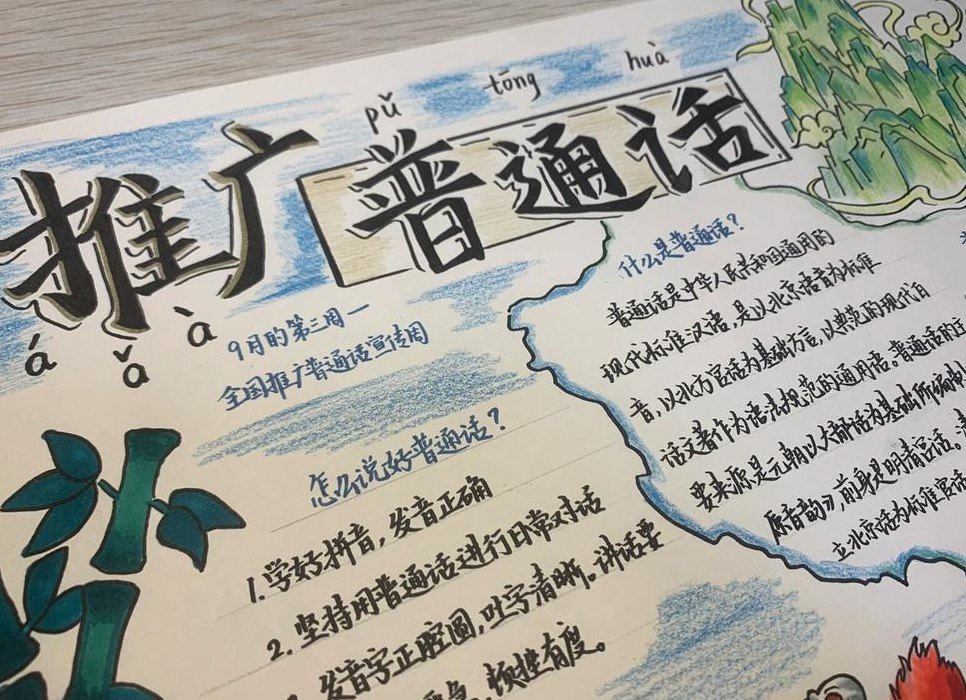 推广普通话
pǔ tōng huà
á ǎ à
9月的第三周一
全国推广普通话宣传周
怎么说好普通话?
1.学好拼音,发音正确
2.坚持用普通话进行日常对话
发音字正腔圆,吐字清晰。讲话要
顿挫有度。
什么是普通话?
普通话是中华人民共和国通用的
现代标准汉语,是以北京语音为标准
音,以北方官话为基础方言,以典范的现代白
话文著作为语法规范的通用语。普通话的主
要来源是元朝以大都话为基础所编
原音韵》,前身是明清官话。
立北京话为标准官话